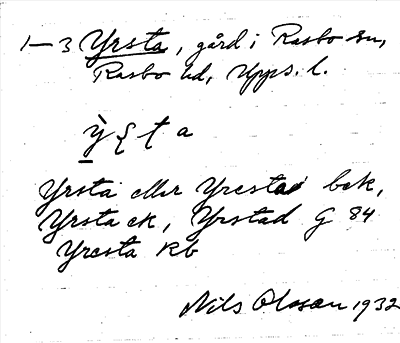 1–3 Yrsta, gård i Rasbo sn,
Rasbo hd, Upps. l.
ỳ̱ʃta
Yrsta eller Yresta bek,
Yrsta ek, Yrstad G 84
Yresta kb
Nils Olsson 1932